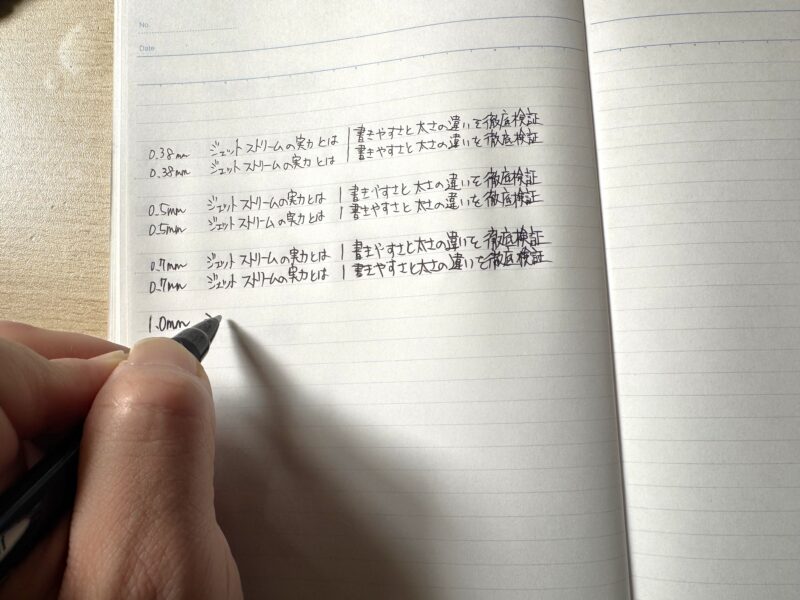 No.
Date
0.38mm ジェットストリームの実力とは | 書きやすさと太さの違いを徹底検証
0.38mm ジェットストリームの実力とは | 書きやすさと太さの違いを徹底検証
0.5mm ジェットストリームの実力とは | 書きやすさと太さの違いを徹底検証
0.5mm ジェットストリームの実力とは | 書きやすさと太さの違いを徹底検証
0.7mm ジェットストリームの実力とは | 書きやすさと太さの違いを徹底検証
0.7mm ジェットストリームの実力とは | 書きやすさと太さの違いを徹底検証
1.0mm